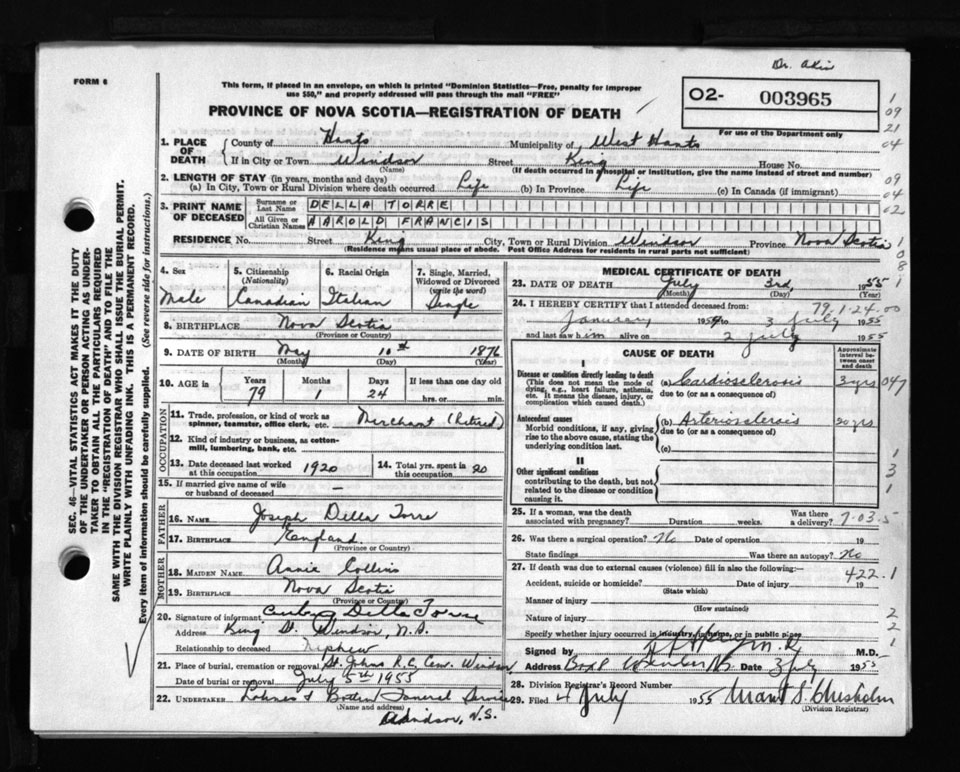 Dr. Akin
FORM 6
This form, if placed in an envelope, on which is printed "Dominion Statistics—Free, penalty for improper
use $50," and properly addressed will pass through the mail "FREE"
PROVINCE OF NOVA SCOTIA—REGISTRATION OF DEATH
O2- 003965
For use of the Department only
1
09
21
04
1. PLACE OF DEATH
County of Hants Municipality of West Hants
If in City or Town Windsor Street King House No.
(Name) (If death occurred in a hospital or institution, give the name instead of street and number)
2. LENGTH OF STAY (in years, months and days)
(a) In City, Town or Rural Division where death occurred Life (b) In Province Life (c) In Canada (if immigrant)
09
04
02
3. PRINT NAME OF DECEASED
Surname or Last Name DELLA TORRE
All Given or Christian Names HAROLD FRANCIS
RESIDENCE No. Street King City, Town or Rural Division Windsor Province Nova Scotia
(Residence means usual place of abode. Post Office Address for residents in rural parts not sufficient)
1
0
8
1
4. Sex Male
5. Citizenship (Nationality) Canadian
6. Racial Origin Italian
7. Single, Married, Widowed or Divorced (write the word) Single
8. BIRTHPLACE Nova Scotia
(Province or Country)
9. DATE OF BIRTH May 10th 1876
(Month) (Day) (Year)
10. AGE in Years 79 Months 1 Days 24 If less than one day old hrs. or min.
OCCUPATION
11. Trade, profession, or kind of work as spinner, teamster, office clerk, etc. Merchant (Retired)
12. Kind of industry or business, as cotton-mill, lumbering, bank, etc.
13. Date deceased last worked at this occupation 1920
14. Total yrs. spent in this occupation 20
15. If married give name of wife or husband of deceased —
FATHER
16. NAME Joseph Della Torre
17. BIRTHPLACE England
(Province or Country)
MOTHER
18. MAIDEN NAME Annie Collins
19. BIRTHPLACE Nova Scotia
(Province or Country)
20. Signature of informant Della Torre
Address King St. Windsor, N.S.
Relationship to deceased Nephew
21. Place of burial, cremation or removal St. Johns R.C. Cem. Windsor
Date of burial or removal July 5th 1955
22. UNDERTAKER Funeral Service
(Name and address)
Windsor, N.S.
MEDICAL CERTIFICATE OF DEATH
23. DATE OF DEATH July 3rd, 1955
(Month) (Day) (Year)
24. I HEREBY CERTIFY that I attended deceased from: 79.1.24.00
January 1954 to 3 July 1955
and last saw him alive on 2 July 1955
CAUSE OF DEATH
Approximate interval between onset and death
I
Disease or condition directly leading to death
(This does not mean the mode of dying, e.g., heart failure, asthenia, etc. It means the disease, injury, or complication which caused death.)
(a) Cardiosclerosis 3 yrs 047
due to (or as a consequence of)
Antecedent causes
Morbid conditions, if any, giving rise to the above cause, stating the underlying condition last.
(b) Arteriosclerosis 20 yrs.
due to (or as a consequence of)
(c)
II
Other significant conditions
contributing to the death, but not related to the disease or condition causing it.
1
3
1
25. If a woman, was the death associated with pregnancy? Duration weeks. Was there a delivery? 7-03.5
26. Was there a surgical operation? No Date of operation 19
State findings Was there an autopsy? No
27. If death was due to external causes (violence) fill in also the following:— 422.1
Accident, suicide or homicide? Date of injury 19
(State which)
Manner of injury
(How sustained)
Nature of injury
Specify whether injury occurred in industry, in home, or in public place
2
2
1
Signed by M.D.
Address Box Windsor NS Date 3 July 1955
28. Division Registrar's Record Number
29. Filed 4 July 1955 S. Chisholm
(Division Registrar)
SEC. 46—VITAL STATISTICS ACT MAKES IT THE DUTY
OF THE UNDERTAKER OR PERSON ACTING AS UNDER-
TAKER TO OBTAIN ALL THE PARTICULARS REQUIRED
IN THE "REGISTRATION OF DEATH" AND TO FILE THE
SAME WITH THE DIVISION REGISTRAR WHO SHALL ISSUE THE BURIAL PERMIT.
WRITE PLAINLY WITH UNFADING INK. THIS IS A PERMANENT RECORD.
Every item of information should be carefully supplied. (See reverse side for instructions.)